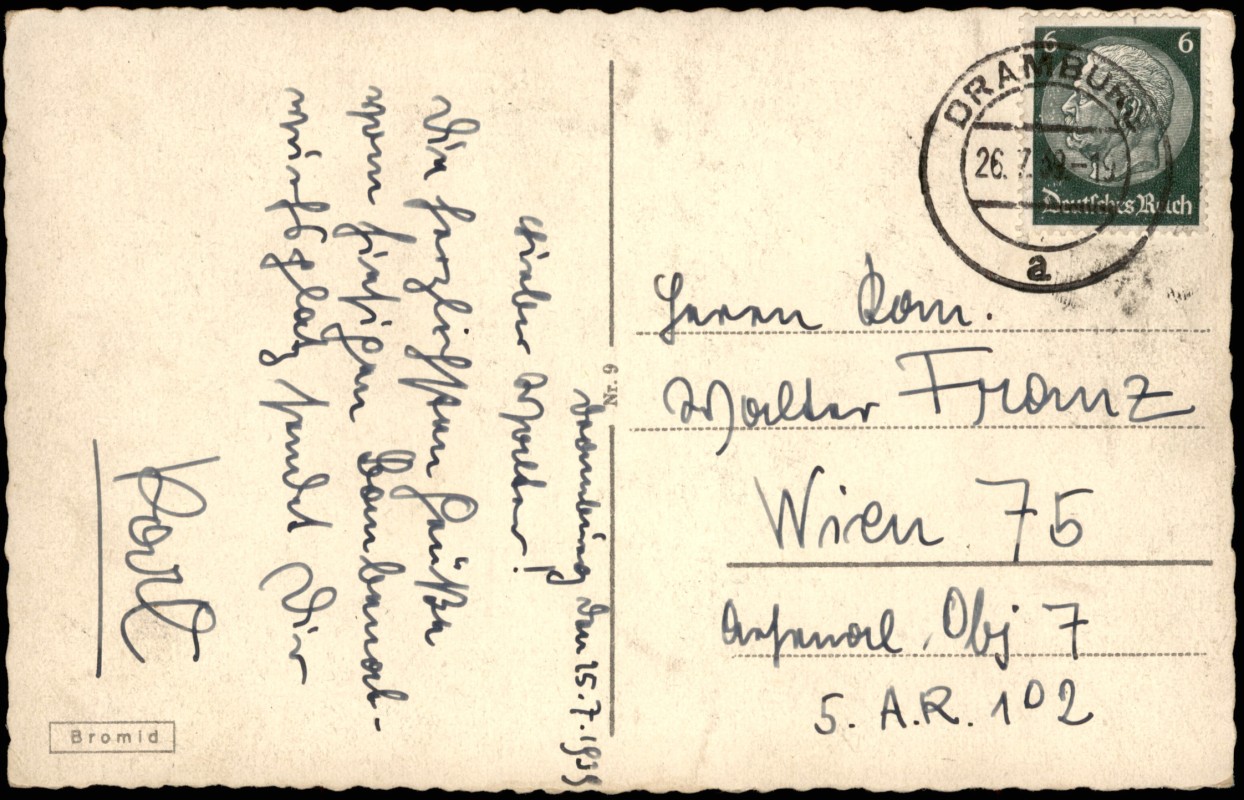 Dramburg den 25.7.1939
Lieber Walter!
Die herzlichsten Grüße
vom hiesigen Bombenab-
wurfsplatz sendet Dir
Karl
Bromid
Nr. 9
6 6
Deutsches Reich
DRAMBURG
26.7.39-19
a
Herrn Kan.
Walter Franz
Wien 75
Arsenal, Obj 7
5. A.R. 102